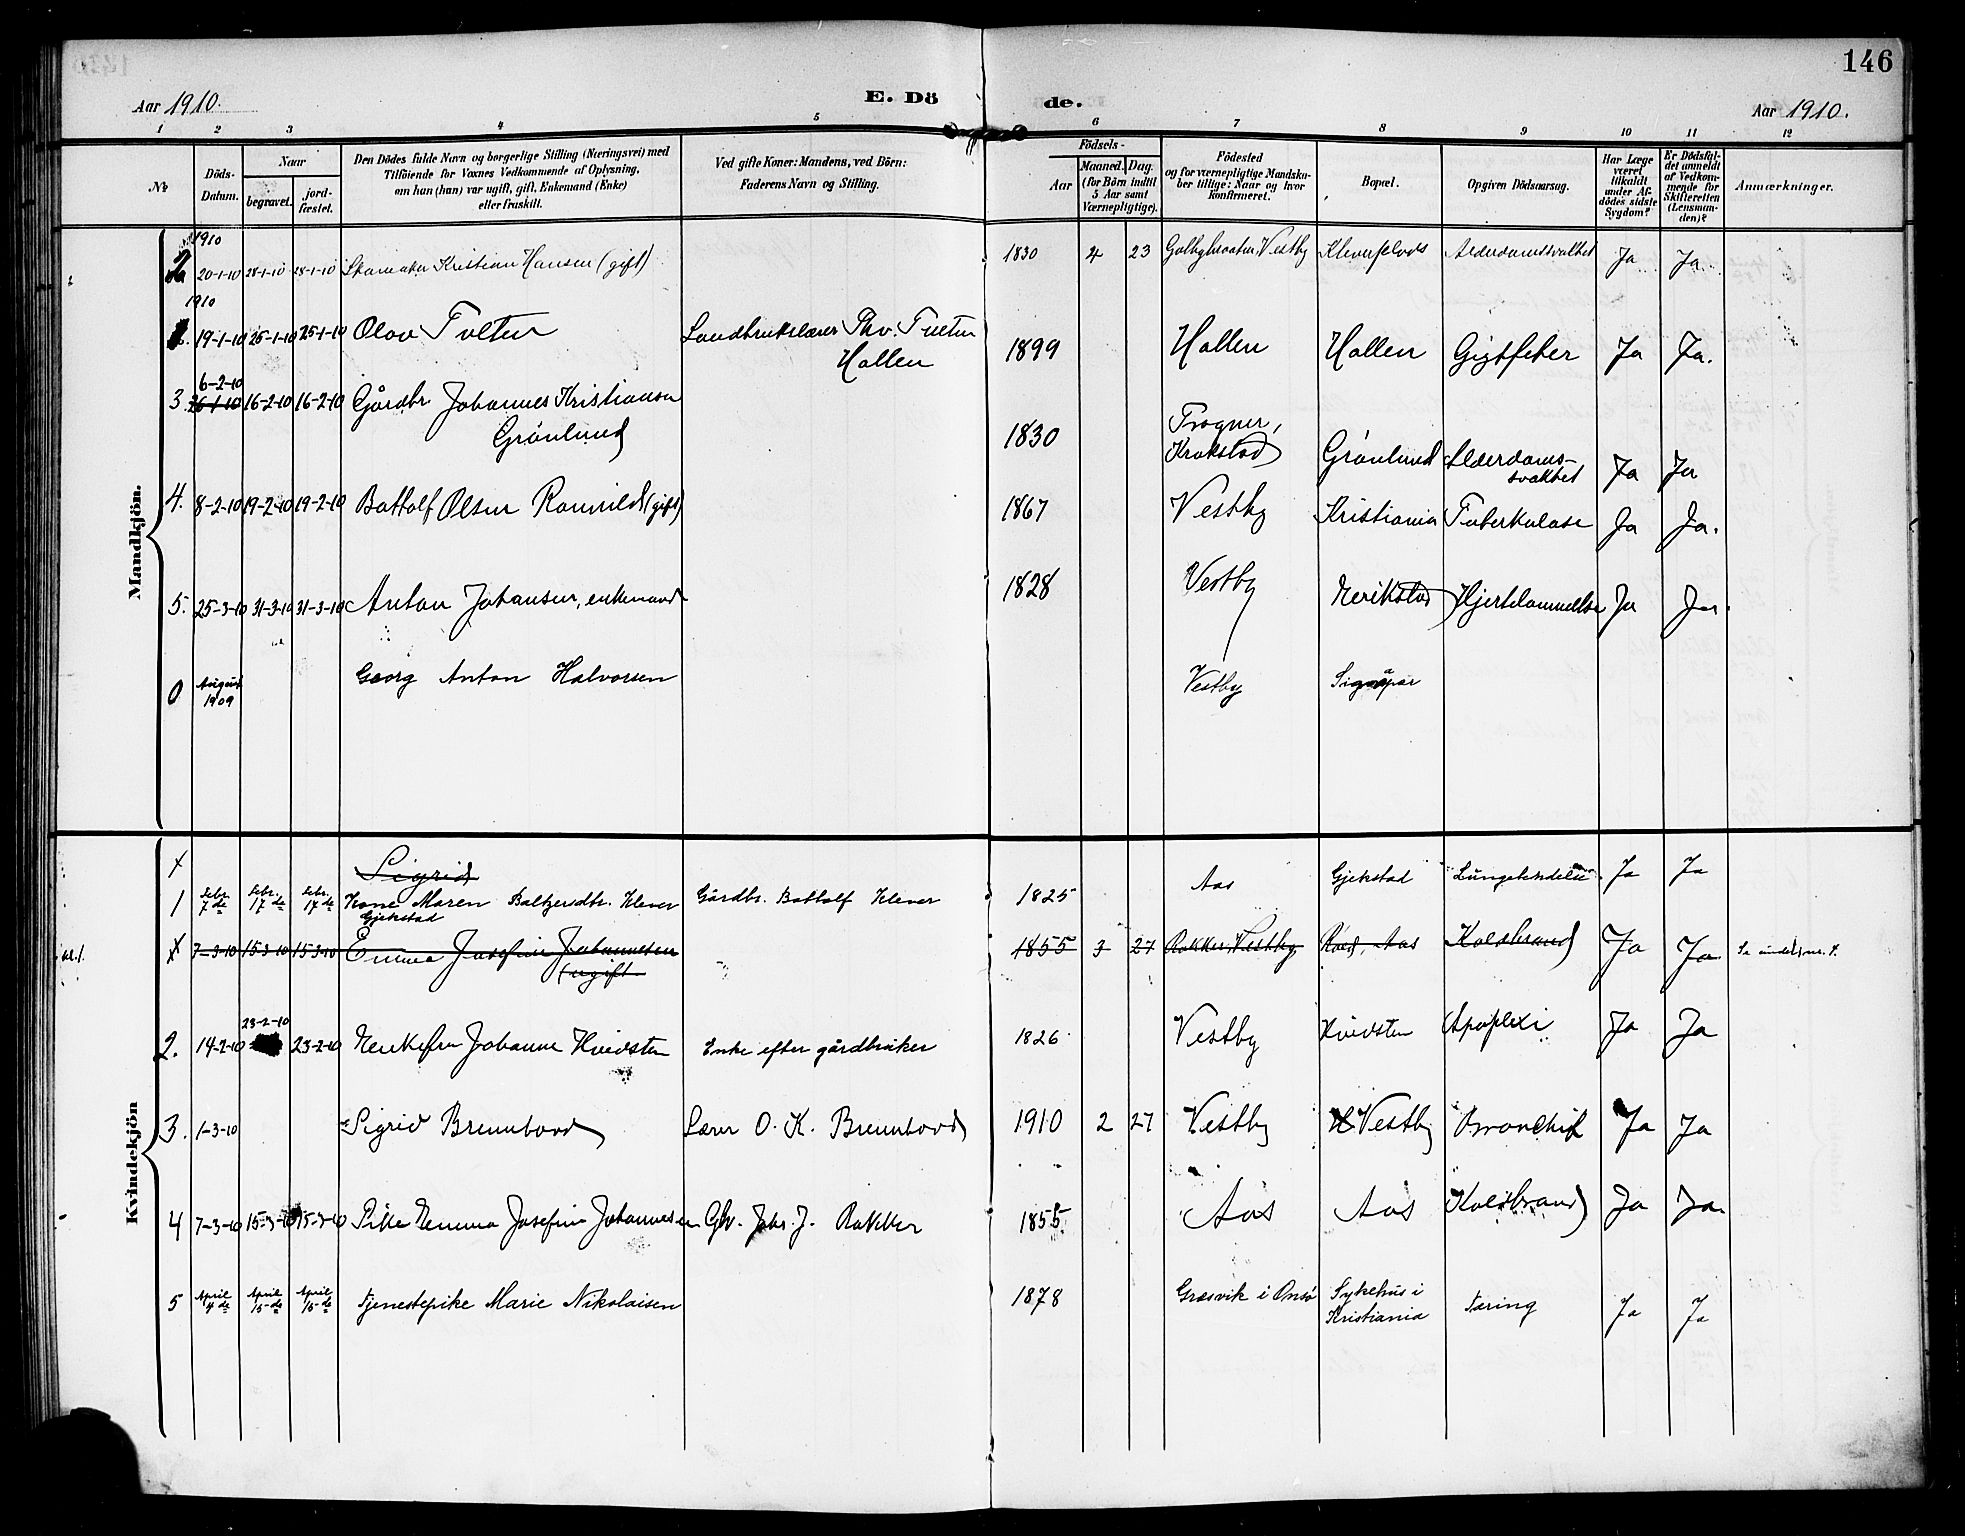 146
Aar 1910.
E. Dö
de.
Aar 1910.
1 2 3 4 5 6 7 8 9 10 11 12
№
Döds-
Datum.
Naar
begravet.
jord-
fæstet.
Den Dödes fulde Navn og borgerlige Stilling (Næringsvei) med
Tilföiende for Voxnes Vedkommende af Oplysning,
om han (hun) var ugift, gift, Enkemand (Enke)
eller fraskilt.
Ved gifte Koner: Mandens, ved Börn:
Faderens Navn og Stilling.
Födsels-
Aar
Maaned.
Dag.
(for Börn indtil
5 Aar samt
Værnepligtige).
Födested
og for værnepligtige Mandska-
ber tillige: Naar og hvor
konfirmeret.
Bopæl.
Opgiven Dödsaarsag.
Har Læge
været
tilkaldt
under Af-
dödes sidste
Sygdom?
Er Dödsfal-
det anmeldt
af Vedkom-
mende for
Skifteretten
(Lensman-
den)?
Anmærkninger.
Mandkjön.
1910
20-1-10 28-1-10 28-1-10 Skomaker Kristian Hansen (gift) 1830 4 23 Vestby Alderdomssvakhet Ja Ja
1910
19-1-10 25-1-10 25-1-10 Olav Tveten Landbrukslærer Thv. Tveten
Hallen 1899 Hallen Hallen Gigtfeber Ja Ja.
6-2-10
3. 26-1-10 16-2-10 16-2-10 Gårdbr Johannes Kristiansen
Grönlund 1830 Frogner,
Krokstad Grönlund Alderdoms-
svakhet Ja Ja
4. 8-2-10 19-2-10 19-2-10 Bottolf Olsen (gift) 1867 Vestby Kristiania Tuberkulose Ja Ja.
5. 25-3-10 31-3-10 31-3-10 Anton Johansen, enkemand 1828 Vestby Erikstad Hjertelammelse Ja Ja.
0 August
1909 Georg Anton Halvorsen Vestby
Kvindekjön
x Sigrid
1 Febr.
7de Febr.
17de Febr.
17de Kone Maren Baltzersdtr. Klever
Gjekstad Gårdbr. Bottolf Klever 1825 Aas Gjekstad Lungebetendelse Ja Ja
x 7-3-10 15-3-10 15-3-10 Emma Josefine Johannesen
(ugift 1855 3 27 Rokker, Vestby Aas Koldbrand Ja Ja Se under nr. 4.
2. 14-2-10 23-2-10 23-2-10 Enkefru Johanne Kvidsten Enke efter gårdbruker 1826 Vestby Kvidsten Apoplexi Ja Ja
3. 1-3-10 Sigrid Brennhovd Lærer O. K. Brennhovd 1910 2 27 Vestby Vestby Bronchit Ja Ja
4 7-3-10 15-3-10 15-3-10 Pike Emma Josefine Johannesen Gbr. Johs. J. Rokker 1855 Aas Aas Koldbrand Ja Ja.
5 April
4de April
15-de April
15-de Tjenestepike Marie Nikolaisen 1878 Græsvik i Onsö Sykehus i
Kristiania Tæring Ja Ja